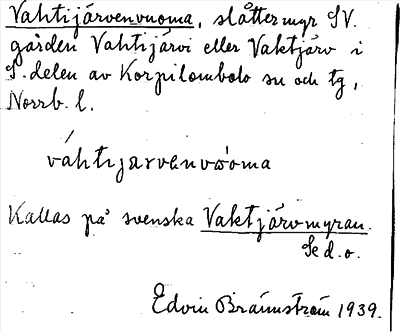 Vahtijärvenvuoma, slåttermyr SV.
gården Vahtijärvi eller Vaktjärv i
S. delen av Korpilombolo sn och tg,
Norrb. l.
váhtijarvenvωoma
Kallas på svenska Vaktjärvmyran.
Se d. o.
Edvin Brännström 1939.